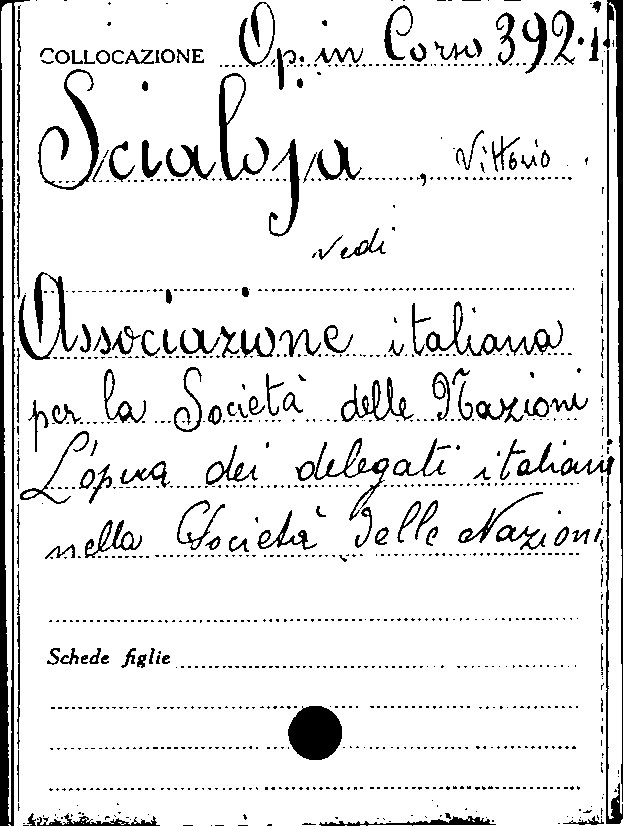 COLLOCAZIONE Op. in Corso 392.1
Scialoja, Vittorio
vedi
Associazione italiana
per la Società delle Nazioni
L'opera dei delegati italiani
nella Società delle Nazioni
Schede figlie